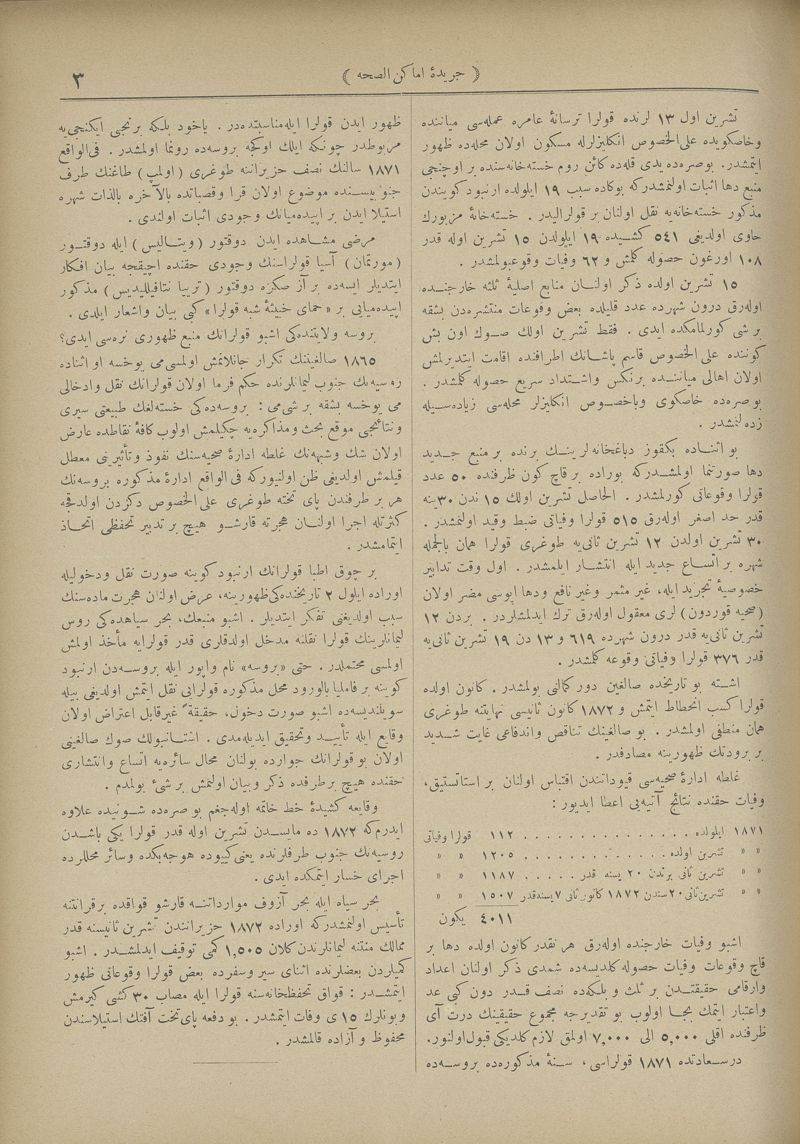 ﴿ جریدهٔ اماکن الصحه ﴾
٣
تشرین اول ١٣ لرنده قولرا ترسانهٔ عامره عمله‌سی میاننده
وخاصکویده علی‌الخصوص انکلیزلرله مسکون اولان محله‌ده ظهور
ایتمشدر. بوصره‌ده یدی قله‌ده کائن روم خسته‌خانه‌سنده بر اوچنجی
منبع دها اثبات اولنمشدرکه بوکاده سبب ١٩ ایلولده ارنبود کویندن
مذکور خسته‌خانه‌یه نقل اولنان بر قولرالیدر . خسته‌خانهٔ مزبورك
حاوی اولدیغی ٥٤١ کشیده ١٩ ایلولدن ١٥ تشرین اوله قدر
١٠٨ اورغون حصوله کلمش و ٦٢ وفیات وقوعبولمشدر .
١٥ تشرین اولده ذکر اولنان منابع اصلیهٔ ثلثه خارجنده
اوله‌رق درون شهرده عدد قلیلده بعض وقوعات منتشره‌دن بشقه
برشی کورلمامکده ایدی . فقط تشرین اولك صوك اون بش
کوننده علی‌الخصوص قاسم پاشانك اطرافنده اقامت ایتدیرلمش
اولان اهالی میاننده برنکس واشتداد سریع حصوله کلمشدر .
بوصره‌ده خاصکوی وباخصوص انکلیزلر محله‌سی زیاده‌سیله
زده‌لنمشدر .
بو اثناده بکقوز دباغخانه‌لرینك برنده بر منبع جدید
دها صورتنما اولمشدرکه بوراده بر قاچ کون ظرفنده ٥٠ عدد
قولرا وقوعاتی کورلمشدر . الحاصل تشرین اولك ١٥ ندن ٣٠ینه
قدر حد اصغر اوله‌رق ٥١٥ قولرا وفیاتی ضبط وقید اولنمشدر .
٣٠ تشرین اولدن ١٢ تشرین ثانی‌یه طوغری قولرا همان بالجمله
شهره بر اتساع جدید ایله انتشار ایلمشدر . اول وقت تدابیر
خصوصیهٔ تجریدایله، غیر مثمر وغیر نافع ودها اپوسی مضر اولان
(صحیه قوردون) لری معقول اوله‌رق ترك ایدلمشلردر . بردن ١٢
تشرین ثانی‌یه قدر درون شهرده ٦١٩ و ١٣ دن ١٩ تشرین ثانی‌یه
قدر ٣٧٦ قولرا وفیاتی وقوعه کلمشدر .
اشته بو تاریخده صالغین دور کمالنی بولمشدر . کانون اولده
قولرا کسب انحطاط ایتمش و ١٨٧٢ کانون ثانیسی نهایتنه طوغری
همان منطفی اولمشدر . بو صالغینك تناقص واندفاعی غایت شدید
بر برودتك ظهورینه مصادفدر .
غلطه ادارهٔ صحیه‌سی قیوداتندن اقتباس اولنان بر استاتستیق،
وفیات حقنده نتائج آتیه‌یی اعطا ایدیور :
١٨٧١ ایلولده . . . . . . . . . . . . . . . ١١٢ قولرا وفیاتی
« « تشرین اولده . . . . . . . . . . . . . ١٢٠٥ « «
« « تشرین ثانی برندن ٢٠ یسنه قدر . . . . . ١١٨٧ « «
« « تشرین‌ثانی ٢٠سندن ١٨٧٢ کانون‌ثانی ٧یسنه‌قدر ١٥٠٧ « «
٤٠١١ یکون
اشبو وفیات خارجنده اوله‌رق هر نقدر کانون اولده دها بر
قاچ وقوعات وفیات حصوله کلدیسه‌ده شمدی ذکر اولنان اعداد
وارقامی حقیقتدن بر ثلث و بلکه‌ده نصف قدر دون کبی عد
واعتبار ایتمك بجا اولوب بو تقدیرجه مجموع حقیقینك درت آی
ظرفنده اقلی ٥,٠٠٠ الی ٧,٠٠٠ اولمق لازم کلدیکی قبول‌اولنور.
درسعادتده ١٨٧١ قولراسی، سنهٔ مذکوره‌ده بروسه‌ده
ظهور ایدن قولرا ایله‌مناسبتده‌در . یاخود بلکه برنجی ایکنجی‌یه
مربوطدر چونکه ایلك اوکجه بروسه‌ده رونما اولمشدر . فی‌الواقع
١٨٧١ سالنك نصف حزیراننه طوغری (اولمپ) طاغنك طرف
جنوبیسنده موضوع اولان قرا وقصباتده بالآخره بالذات شهره
استیلا ایدن بر اپیده‌میانك وجودی اثبات اولندی .
مرضی مشاهده ایدن دوقتور (ویتالیس) ایله دوقتور
(مورتمان) آسیا قولراسنك وجودی حقنده آچیقجه بیان افکار
ایتدیلر ایسه‌ده بر آز صکره دوقتور (تریبا نتافیللیدیس) مذکور
اپیده‌میایی بر «حمای خبیثهٔ شبه قولرا» کبی بیان واشعار ایلدی .
بروسه ولایتنده‌کی اشبو قولرانك منبع ظهوری نره‌سی ایدی؟
١٨٦٥ صالغیننك تکرار جانلانمش اولمسی‌می یوخسه او اثناده
روسیه‌نك جنوب لیمانلرنده حکم فرما اولان قولرانك نقل وادخالی
می یوخسه بشقه برشی‌می : بروسه‌ده‌کی خسته‌لغك طبیعتی سیری
ونتائجی موقع بحث ومذاکره‌یه چکیلمش اولوب کافهٔ نقاطده عارض
اولان شك وشبهه‌نك غلطه ادارهٔ صحیه‌سنك نفوذ وتأثیرینی معطل
قیلمش اولدیغی ظن اولنیورکه فی‌الواقع ادارهٔ مذکوره بروسه‌نك
هر بر طرفندن پای تخته طوغری علی‌الخصوص دکزدن اولدقجه
کثرتله اجرا اولنان هجرته قارشو هیچ بر تدبیر تحفظی اتخاذ
ایتمامشدر .
بر چوق اطبا قولرانك ارنبود کوینه صورت نقل ودخولیله
اوراده ایلول ٢ تاریخنده‌کی‌ظهورینه، عرض اولنان هجرت ماده‌سنك
سبب اولدیغنی تفکر ایتدیلر . اشبو منبعك، بحر سیاهده‌کی روس
لیمانلرینك قولرا نقلنه مدخل اولدقلری قدر قولرایه مأخذ اولمش
اولمسی محتملدر . حتی «بروسه» نام واپور ایله بروسه‌دن ارنبود
کوینه بر فامیلیا بالورود محل مذکوره قولرایی نقل ایتمش اولدیغی بیله
سویلندیسه‌ده اشبو صورت دخول، حقیقةً غیرقابل اعتراض اولان
وقایع ایله تأیید وتحقیق ایدیله‌مدی . استانبولك صوك صالغینی
اولان بو قولرانك جوارده بولنان محال سائره‌یه اتساع وانتشاری
حقنده هیچ برطرفده ذکر وبیان اولنمش برشیٔ بولمدم .
وقایعه کشیدهٔ خط خاتمه اوله‌جغم بو صره‌ده شونیده علاوه
ایدرم‌که ١٨٧٢ ده مایسدن تشرین اوله قدر قولرا یکی باشدن
روسیه‌نك جنوب طرفلرنده یعنی کییوده هوجه‌بکده وسائر محللرده
اجرای خسار ایتمکده ایدی .
بحر سیاه ایله بحر آزوف موارداتنه قارشو قواقده برقرانتنه
تأسیس اولنمشدرکه اوراده ١٨٧٢ حزیرانندن تشرین ثانیسنه قدر
ممالك منتنه لیمانلرندن‌کلان ١,٥٠٥ کمی توقیف ایدلمشدر . اشبو
کمیلردن بعضلرنده اثنای سیروسفرده بعض قولرا وقوعاتی ظهور
ایتمشدر : قواق تحفظخانه‌سنه قولرا ایله مصاب ٣٠ کشی کیرمش
وبونلرك ١٥ ی وفات ایتمشدر . بو دفعه پای‌تخت آفتك استیلاسندن
محفوظ و آزاده قالمشدر .